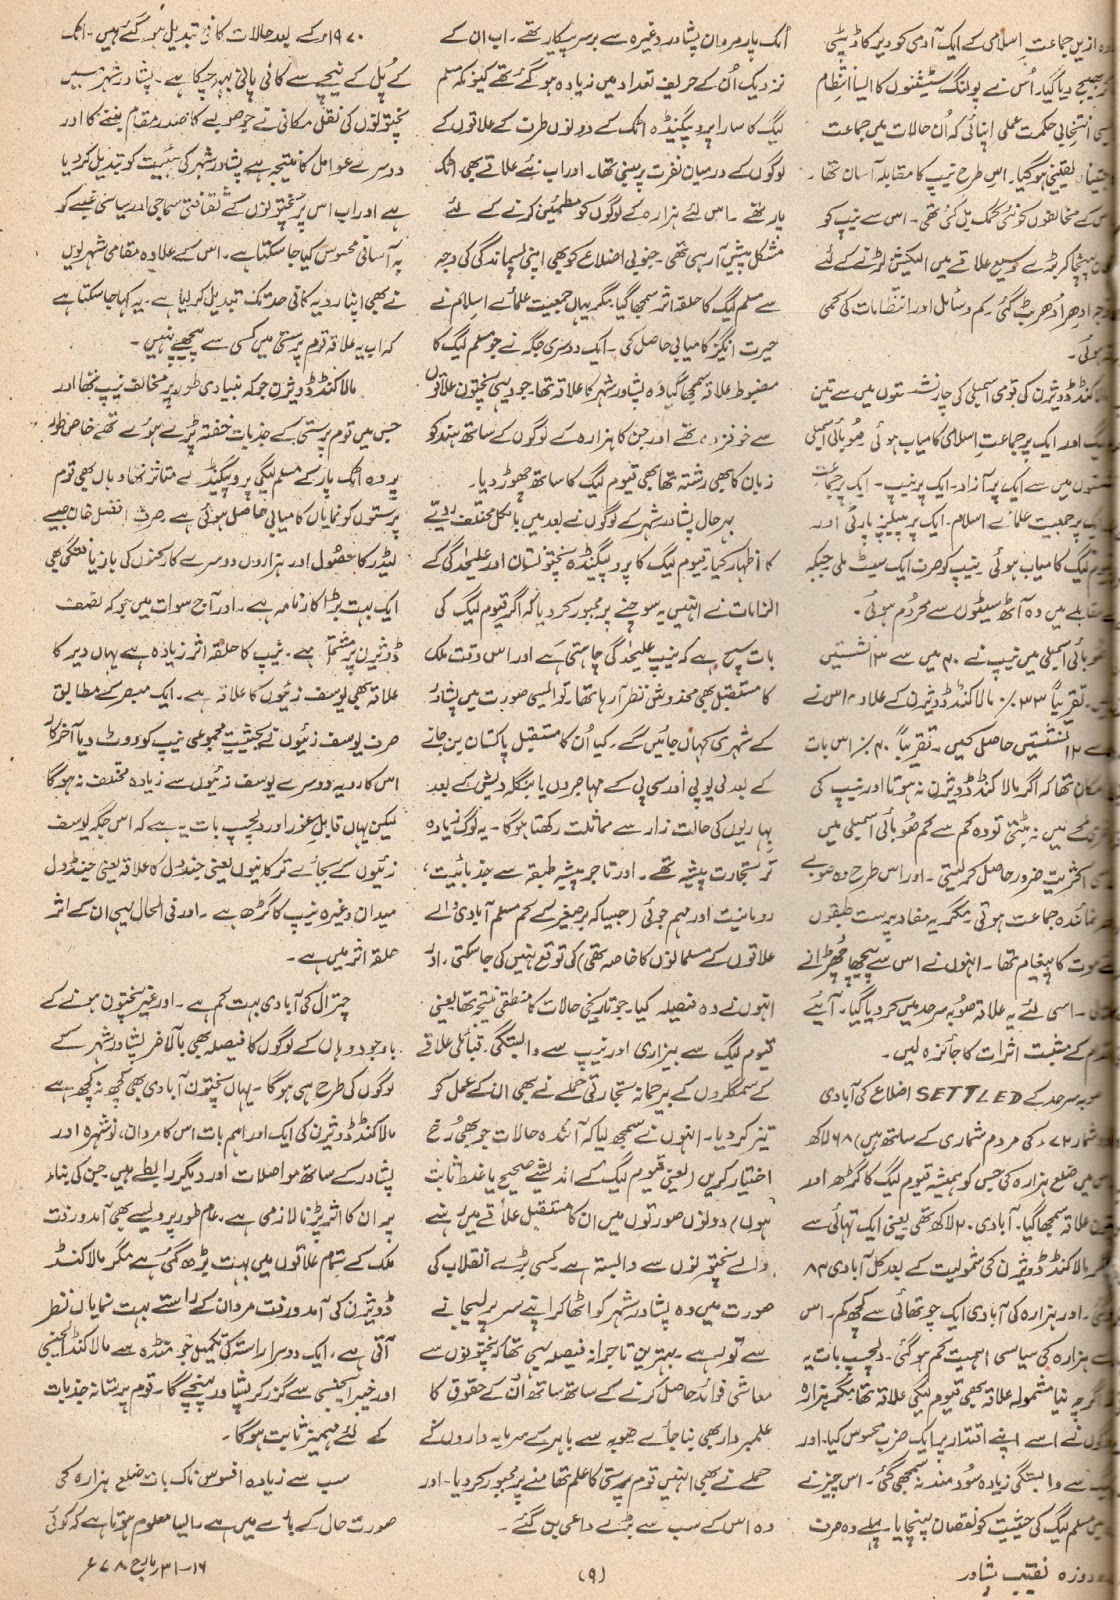 ازیں جماعتِ اسلامی کے ایک آدمی کو دیر کا ڈپٹی
بھیج دیا گیا۔ اُس نے پولنگ سٹیشنوں کا ایسا انتظام
انتخابی حکمت عملی اپنائی کہ اُن حالات میں جماعت
یقینی ہو گیا۔ اس طرح نیپ کا مقابلہ آسان تھا۔
کے مخالفوں کو نئی کمک مل گئی تھی۔ اس سے نیپ کو
بڑے وسیع علاقے میں الیکشن لڑنے کے لئے
ادھر اُدھر بٹ گئی۔ کم وسائل اور انتظامات کی کمی
ہوئی۔
مالاکنڈ ڈویژن کی قومی اسمبلی کی چار نشستوں میں سے تین
اور ایک پر جماعتِ اسلامی کامیاب ہوئی۔ صُوبائی اسمبلی
میں سے ایک پر آزاد۔ ایک پر نیپ۔ ایک پر جماعت
ایک پر جمعیت علمائے اسلام۔ ایک پر پیپلز پارٹی اور
لیگ کامیاب ہوئی۔ نیپ کو صرف ایک سیٹ ملی جبکہ
مقابلے میں وہ آٹھ سیٹوں سے محرُوم ہوئی۔
صُوبائی اسمبلی میں نیپ نے ۴۰ میں سے ۱۳ نشستیں
تقریباً ۳۳٪ مالاکنڈ ڈویژن کے علاوہ اس نے
۱۲ نشستیں حاصل کیں۔ تقریباً ۴۰٪ اس بات
امکان تھا کہ اگر مالاکنڈ ڈویژن نہ ہوتا اور نیپ کی
میں نہ بٹتی تو وہ کم سے کم صُوبائی اسمبلی میں
اکثریت ضرور حاصل کر لیتی۔ اور اس طرح وہ صوبے
نمائندہ جماعت ہوتی۔ مگر یہ مفاد پرست طبقوں
موت کا پیغام تھا۔ انہوں نے اس سے پیچھا چھڑانے
۔ اسی لئے یہ علاقہ صُوبہ سرحد میں کر دیا گیا۔ آیئے
کے مثبت اثرات کا جائزہ لیں۔
صوبہ سرحد کے SETTLED اضلاع کی آبادی
شمار ۷۲ء کی مردم شماری کے ساتھ ہیں) ۶۸ لاکھ
میں ضلع ہزارہ کی جس کو ہمیشہ قیوم لیگ کا گڑھ اور
علاقہ سمجھا گیا۔ آبادی ۲۰ لاکھ تھی یعنی ایک تہائی سے
مالاکنڈ ڈویژن کی شمولیت کے بعد کل آبادی ۸۴
۔ اور ہزارہ کی آبادی ایک چوتھائی سے کچھ کم۔ اس
سے ہزارہ کی سیاسی اہمیت کم ہو گئی۔ دلچسپ بات یہ
اگرچہ نیا مشمولہ علاقہ بھی قیوم لیگی علاقہ تھا مگر ہزارہ
نے اسے اپنے اقتدار پر ایک ضرب محسوس کیا۔ اور
سے وابستگی زیادہ سُود مند نہ سمجھی گئی۔ اس چیز نے
میں مسلم لیگ کی حیثیت کو نقصان پہنچایا۔ پہلے وہ صرف
اٹک پار مروان پشاور وغیرہ سے برسرپیکار تھے۔ اب ان کے
نزدیک اُن کے حریف تعداد میں زیادہ ہو گئے تھے کیونکہ مسلم
لیگ کا سارا پروپیگنڈہ اٹک کے دونوں طرف کے علاقوں کے
لوگوں کے درمیان نفرت پر مبنی تھا۔ اور اب نئے علاقے بھی اٹک
پار تھے۔ اس لئے ہزارہ کے لوگوں کو مطمئن کرنے کے لئے
مشکل پیش آرہی تھی۔ جنوبی اضلاع کو بھی اپنی پسماندگی کی وجہ
سے مسلم لیگ کا حلقہ اثر سمجھا گیا۔ مگر یہاں جمعیت علمائے اسلام نے
حیرت انگیز کامیابی حاصل کی۔ ایک دوسری جگہ نے جو مسلم لیگ کا
مضبوط علاقہ سمجھا گیا وہ پشاور شہر کا علاقہ تھا۔ جو دیہی پختون علاقوں
سے خوفزدہ تھے اور جن کا ہزارہ کے لوگوں کے ساتھ ہندکو
زبان کا بھی رشتہ تھا بھی قیوم لیگ کا ساتھ چھوڑ دیا۔
بہرحال پشاور شہر کے لوگوں نے بعد میں بالکل مختلف رویّے
کا اظہار کیا۔ قیوم لیگ کا پروپیگنڈہ پختونستان اور علیحدگی کے
الزامات نے انہیں یہ سوچنے پر مجبور کر دیا کہ اگر قیوم لیگ کی
بات سچ ہے کہ نیپ علیحدگی چاہتی ہے اور اس وقت ملک
کا مستقبل بھی مخدوش نظر آرہا تھا۔ تو ایسی صورت میں پشاور
کے شہری کہاں جائیں گے۔ کیا اُن کا مستقبل پاکستان بن جانے
کے بعد یوپی اور سی پی کے مہاجروں یا بنگلہ دیش کے بعد
بہاریوں کی حالتِ زار سے مماثلت رکھتا ہوگا۔ یہ لوگ زیادہ
تر تجارت پیشہ تھے۔ اور تاجر پیشہ طبقہ سے جذباتیت،
رومانیت اور مہم جوئی (جیسا کہ برصغیر کے کم مسلم آبادی والے
علاقوں کے مسلمانوں کا خاصہ تھی) کی توقع نہیں کی جا سکتی۔ اور
انہوں نے وہ فیصلہ کیا۔ جو تاریخی حالات کا منطقی نتیجہ تھا یعنی
قیوم لیگ سے بیزاری اور نیپ سے وابستگی۔ قبائلی علاقے
کے سمگلروں کے بیرحمانہ تجارتی حملے نے بھی ان کے عمل کو
تیز کر دیا۔ انہوں نے سمجھ لیا کہ آئندہ حالات جو بھی رُخ
اختیار کریں (یعنی قیوم لیگ کے اندیشے صحیح یا غلط ثابت
ہوں) دونوں صورتوں میں ان کا مستقبل علاقے میں بسنے
والے پختونوں سے وابستہ ہے۔ کسی بڑے انقلاب کی
صورت میں وہ پشاور شہر کو اٹھا کر اپنے سر پر لیجانے
سے تو رہے۔ بہترین تاجرانہ فیصلہ یہی تھا کہ پختونوں سے
معاشی فوائد حاصل کرنے کے ساتھ ساتھ اُن کے حقوق کا
علمبردار بھی بنا جائے صوبہ سے باہر کے سرمایہ داروں کے
حملے نے بھی انہیں قوم پرستی کا علم تھامنے پر مجبور کر دیا۔ اور
وہ اس کے سب سے بڑے داعی بن گئے۔
۱۹۷۰ء کے بعد حالات کافی تبدیل ہو گئے ہیں۔ اٹک
کے پُل کے نیچے سے کافی پانی بہہ چکا ہے۔ پشاور شہر میں
پختونوں کی نقل مکانی نے جو صوبے کا صدر مقام بننے کا اور
دوسرے عوامل کا نتیجہ ہے پشاور شہر کی ہیئت کو تبدیل کر دیا
ہے اور اب اس پر پختونوں کے ثقافتی سماجی اور سیاسی غلبے کو
بہ آسانی محسوس کیا جا سکتا ہے۔ اس کے علاوہ مقامی شہریوں
نے بھی اپنا رویہ کافی حد تک تبدیل کر لیا ہے۔ یہ کہا جا سکتا ہے
کہ اب یہ علاقہ قوم پرستی میں کسی سے پیچھے نہیں۔
مالاکنڈ ڈویژن جو کہ بنیادی طور پر مخالف نیپ تھا اور
جس میں قوم پرستی کے جذبات خفتہ پڑے ہوئے تھے خاص طور
پر وہ اٹک پار کے مسلم لیگی پروپیگنڈے سے متاثر تھا وہاں بھی قوم
پرستوں کو نمایاں کامیابی حاصل ہوئی ہے۔ صرف افضل خان جیسے
لیڈر کا حصول اور ہزاروں دوسرے کارکنوں کی بازیافتگی بھی
ایک بہت بڑا کارنامہ ہے۔ اور آج سوات میں جو کہ نصف
ڈویژن پر مشتمل ہے۔ نیپ کا حلقہ اثر زیادہ ہے یہاں دیر کا
علاقہ بھی یوسف زئیوں کا علاقہ ہے۔ ایک مبصر کے مطابق
صرف یوسف زئیوں نے بحیثیت مجموعی نیپ کو ووٹ دیا آخرکار
اس کا رویہ دوسرے یوسف زئیوں سے زیادہ مختلف نہ ہوگا
لیکن یہاں قابلِ غور اور دلچسپ بات یہ ہے کہ اس جگہ یوسف
زئیوں کے بجائے ترکانیوں یعنی جندول کا علاقہ یعنی جندول
میدان وغیرہ نیپ کا گڑھ ہے۔ اور فی الحال یہی ان کے اثر
حلقہ اثر میں ہے۔
چترال کی آبادی بہت کم ہے۔ اور غیر پختون ہونے کے
باوجود وہاں کے لوگوں کا فیصلہ بھی بالآخر پشاور شہر کے
لوگوں کی طرح ہی ہوگا۔ یہاں پختون آبادی بھی کچھ نہ کچھ ہے
مالاکنڈ ڈویژن کی ایک اور اہم بات اس کا مردان، نوشہرہ اور
پشاور کے ساتھ مواصلات اور دیگر رابطے ہیں۔ جن کی بناء
پر ان کا اثر پڑنا لازمی ہے۔ عام طور پر ویسے بھی آمدورفت
ملک کے تمام علاقوں میں بہت بڑھ گئی ہے مگر مالاکنڈ
ڈویژن کی آمدورفت مردان کے راستے بہت نمایاں نظر
آتی ہے۔ ایک دوسرا راستہ کی تکمیل جو منڈہ سے مالاکنڈ ایجنسی
اور خیبر ایجنسی سے گزر کر پشاور پہنچے گا۔ قوم پرستانہ جذبات
کے لئے مہمیز ثابت ہوگا۔
سب سے زیادہ افسوس ناک بات ضلع ہزارہ کی
صورت حال کے بارے میں ہے۔ ایسا معلوم ہوتا ہے کہ کوئی
روزہ نقیب پشاور
(۹)
۱۶-۳۱ مارچ ۷۸ء